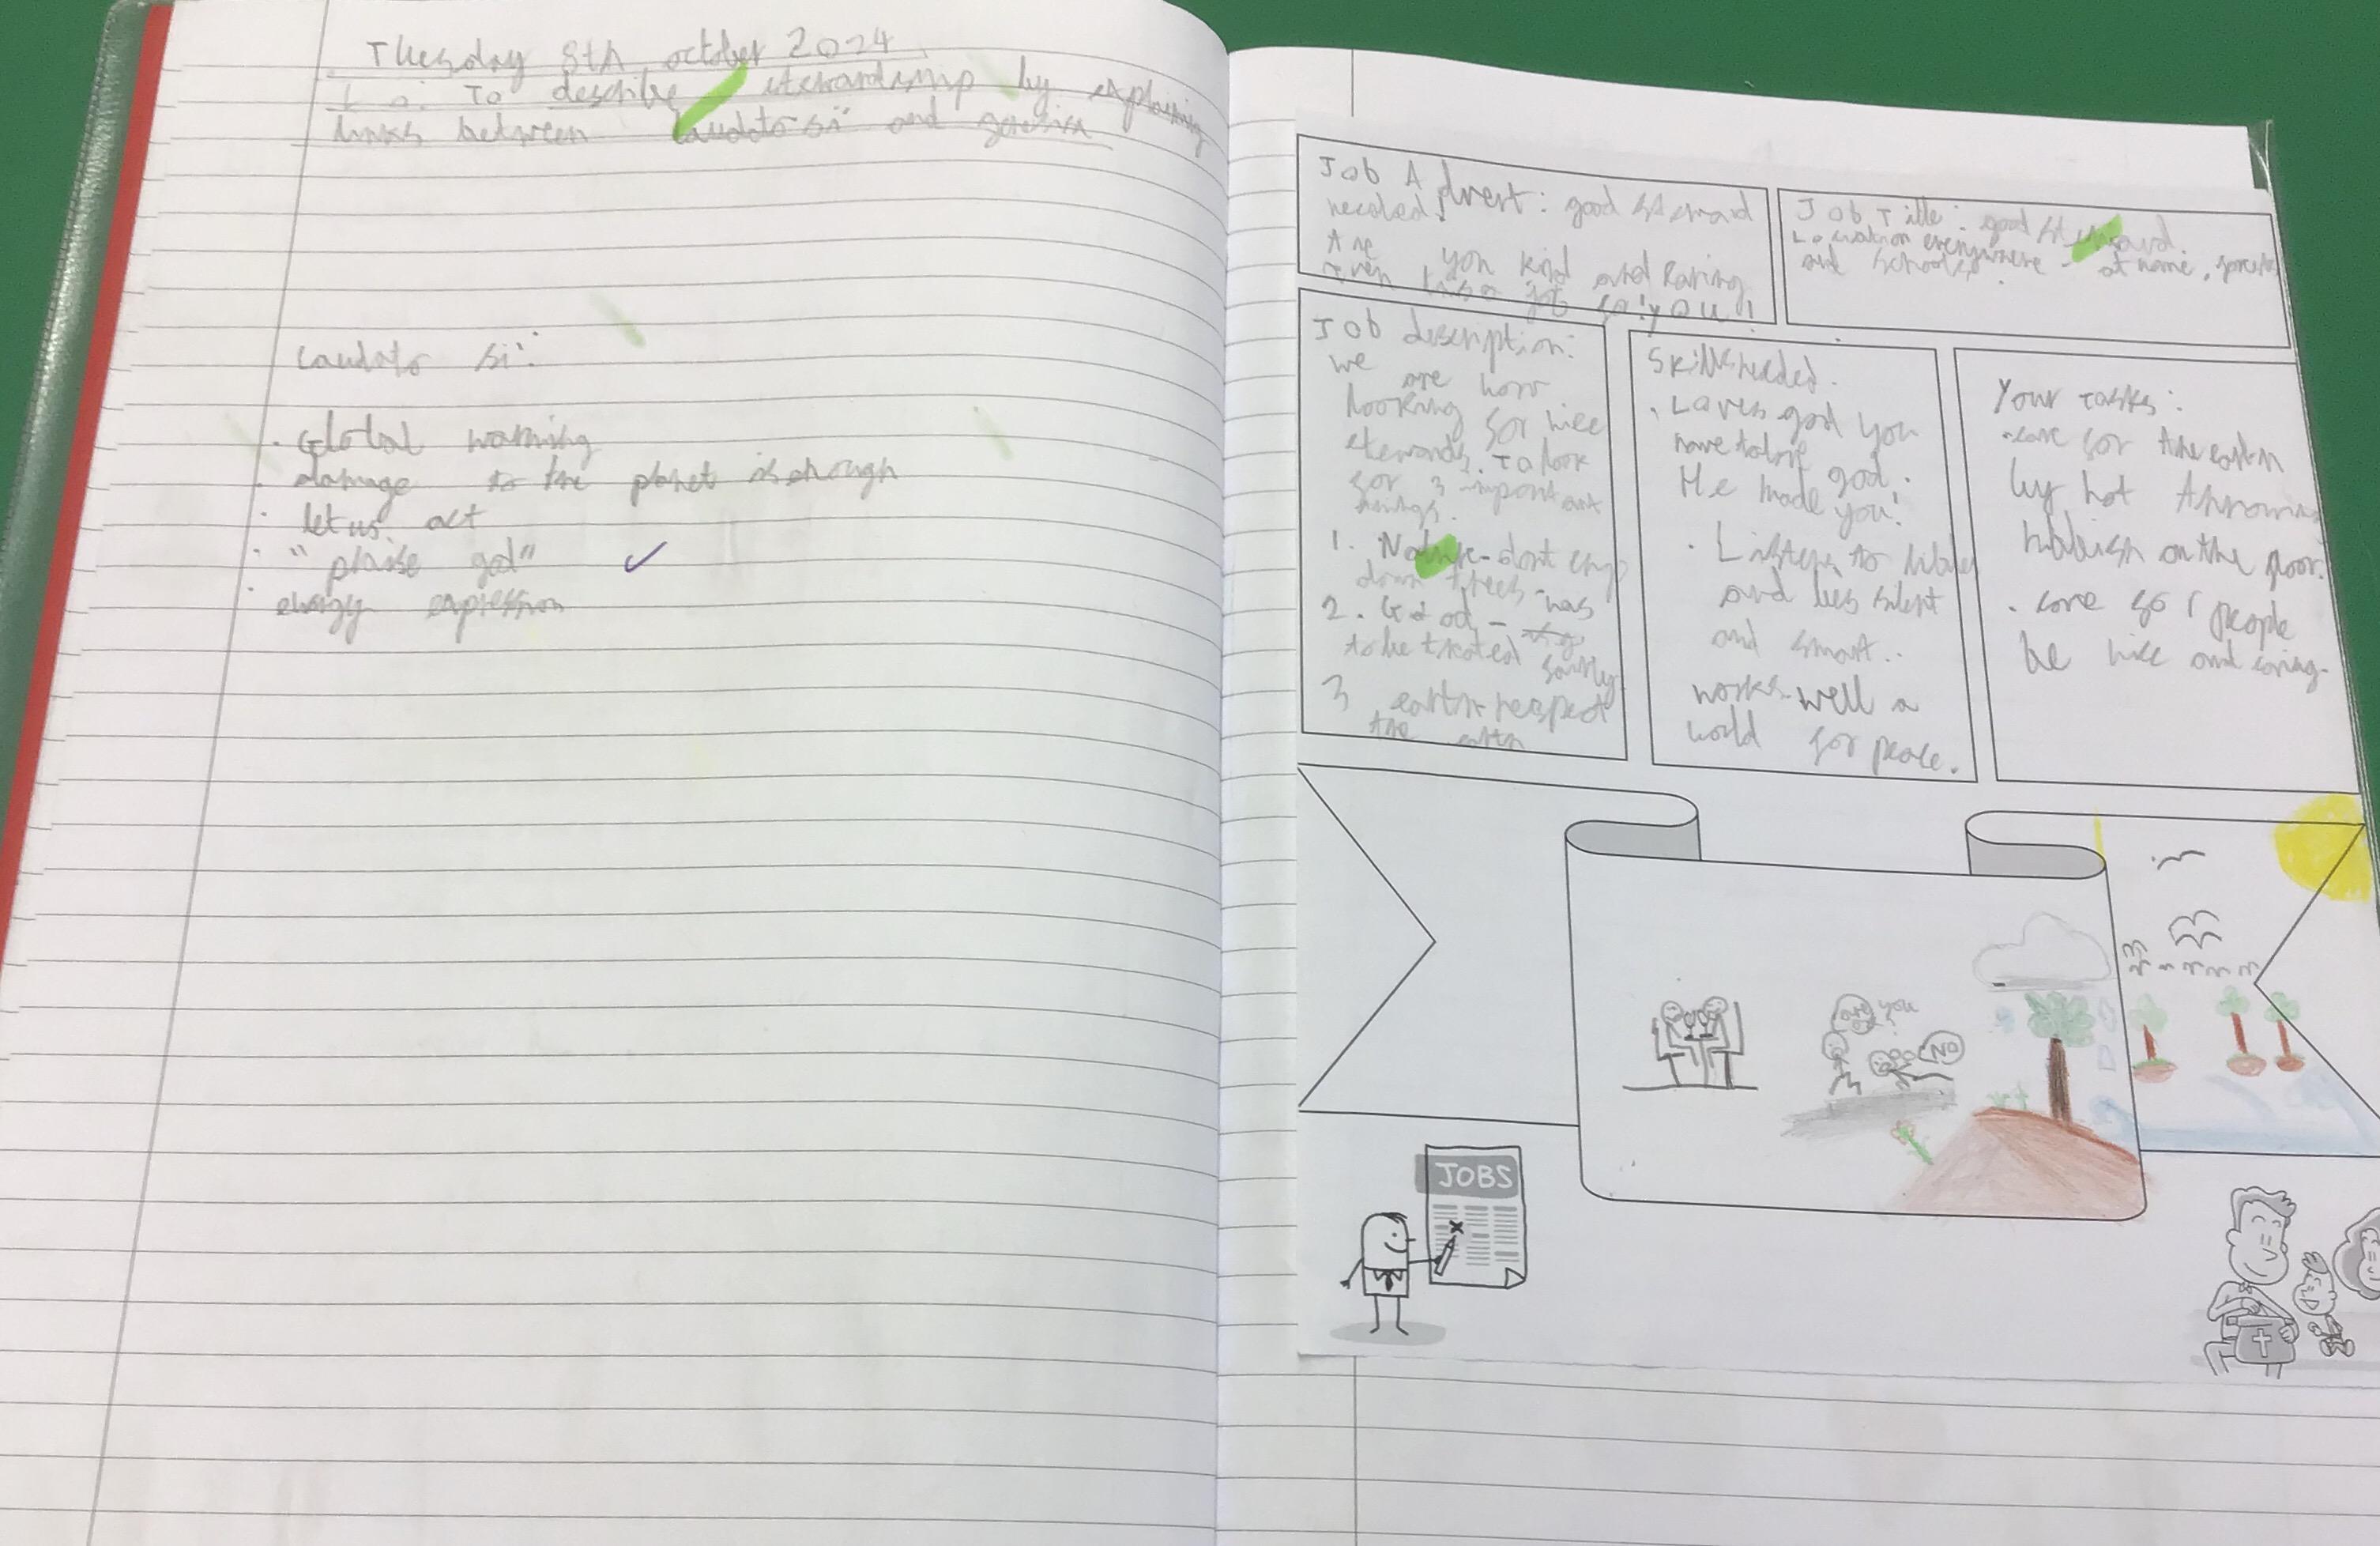 Tuesday 8th october 2024
L.o: To describe stewardship by explaining
links between laudato si" and genesis
Laudato si':
. Global warming
. damage to the planet is enough
. let us act
. "praise god"
. energy expression
Job Advert: good steward
needed!
Are you kind and
job you!
Job Title: good steward.
Location everywhere - at home,
and schools.
Job description:
we are now
looking for nice
stewards. To look
for 3 important
things.
1. Nature - dont
down trees -
2. God - has
to be treated
3 earth - respect
the earth
Skills needed.
. Loves god you
have to love god.
He made you!
. Listens to
and silent
and smart..
works well a
world for peace.
Your tasks:
. care for the earth
by not throwing
rubbish on the floor.
. care for people
be nice and caring.
are you
NO
JOBS